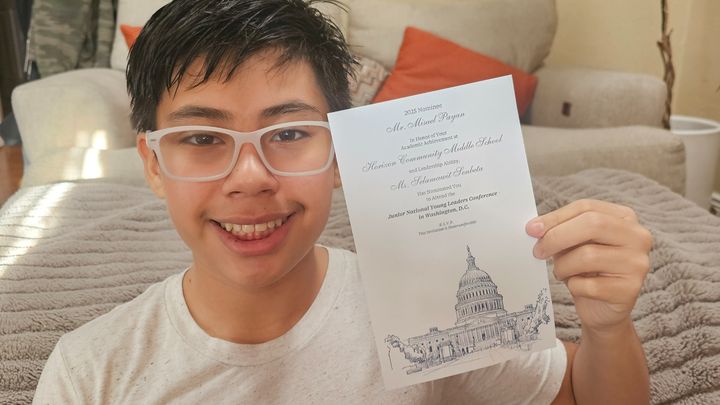 2025 Nominee
Mr. Misael Payan
In Honor of Your
Academic Achievement at
Horizon Community Middle School
and Leadership Ability,
Ms. Selamawit Senbeta
Has Nominated You
to Attend the
Junior National Young Leaders Conference
in Washington, D.C.
R.S.V.P.
This Invitation is Nontransferable